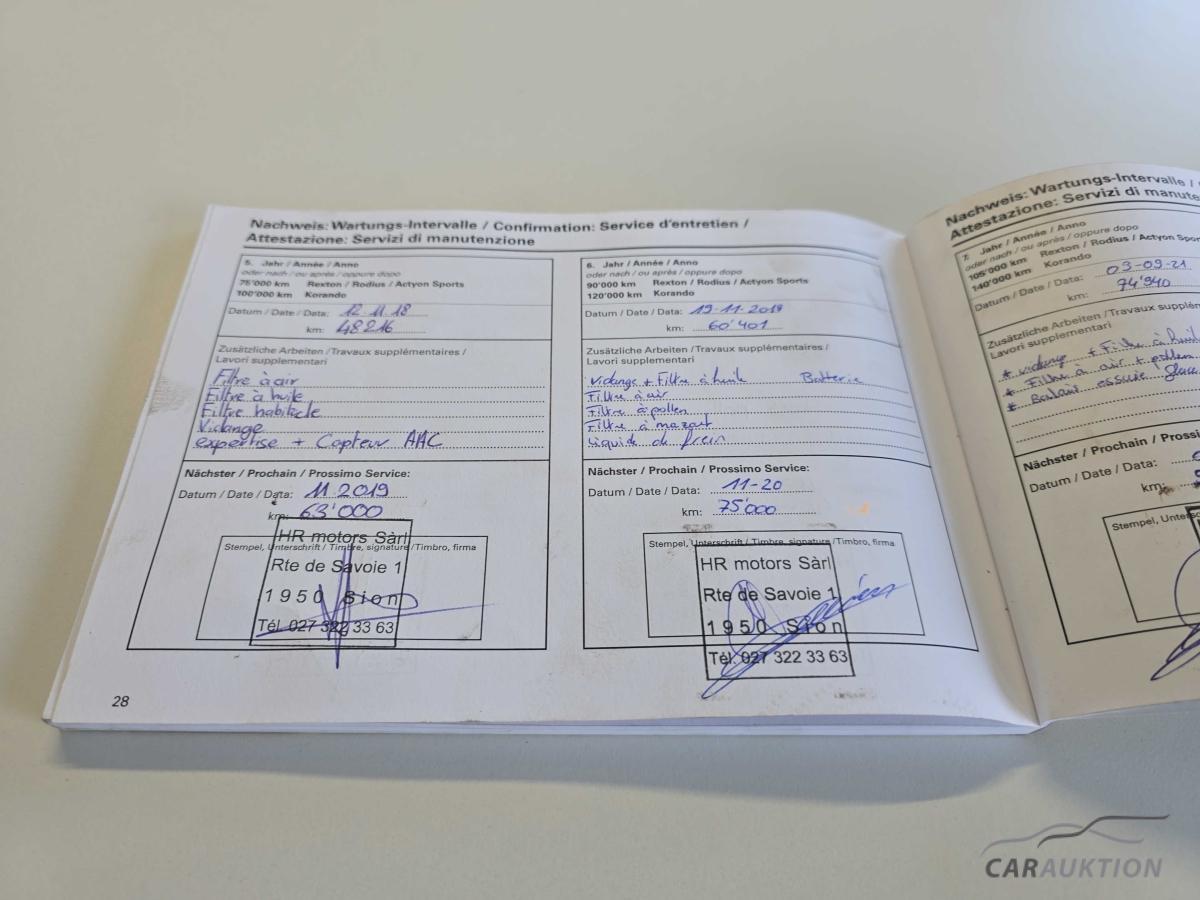 Nachweis: Wartungs-Intervalle / Confirmation: Service d'entretien /
Attestazione: Servizi di manutenzione
5. Jahr / Année / Anno
oder nach / ou après / oppure dopo
75'000 km Rexton / Rodius / Actyon Sports
100'000 km Korando
Datum / Date / Data: 12.11.18
km: 48216
Zusätzliche Arbeiten / Travaux supplémentaires /
Lavori supplementari
Filtre à air
Filtre à huile
Filtre habitacle
Vidange
expertise + Capteur AAC
Nächster / Prochain / Prossimo Service:
Datum / Date / Data: 11.2019
km: 63'000
Stempel, Unterschrift / Timbre, signature / Timbro, firma
HR motors Sàrl
Rte de Savoie 1
1950 Sion
Tél. 027 322 33 63
28
6. Jahr / Année / Anno
oder nach / ou après / oppure dopo
90'000 km Rexton / Rodius / Actyon Sports
120'000 km Korando
Datum / Date / Data: 19-11-2019
km: 60'401
Zusätzliche Arbeiten / Travaux supplémentaires /
Lavori supplementari
Vidange + Filtre à huile Batterie
Filtre à air
Filtre à pollen
Filtre à mazout
Liquide de frein
Nächster / Prochain / Prossimo Service:
Datum / Date / Data: 11-20
km: 75'000
Stempel, Unterschrift / Timbre, signature / Timbro, firma
HR motors Sàrl
Rte de Savoie 1
1950 Sion
Tél. 027 322 33 63
Nachweis: Wartungs-Intervalle /
Attestazione: Servizi di manute
7. Jahr / Année / Anno
oder nach / ou après / oppure dopo
105'000 km Rexton / Rodius / Actyon Spor
140'000 km Korando
Datum / Date / Data: 03-09-21
km: 74'940
Zusätzliche Arbeiten / Travaux supplémen
Lavori supplementari
* vidange + Filtre à huile
* Filtre à air + pollen
* Balais essuie glace
Nächster / Prochain / Prossim
Datum / Date / Data:
km:
Stempel, Unters
CARAUKTION